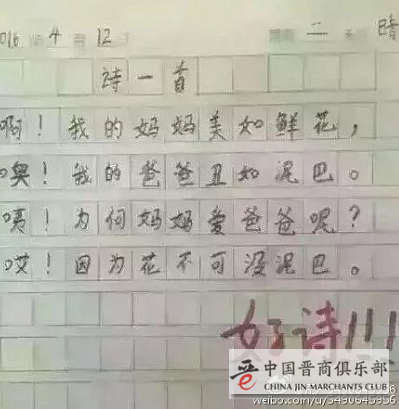 016 年 4 月 12 二 晴
诗一首
啊！我的妈妈美如鲜花，
噢！我的爸爸丑如泥巴。
咦！为何妈妈爱爸爸呢？
哎！因为花不可没泥巴。
好诗!!!
中国晋商俱乐部
CHINA JIN-MARCHANTS CLUB
weibo.com/u/5490645956